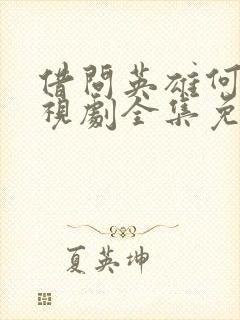 借問英雄何
視劇全集免
夏英坤